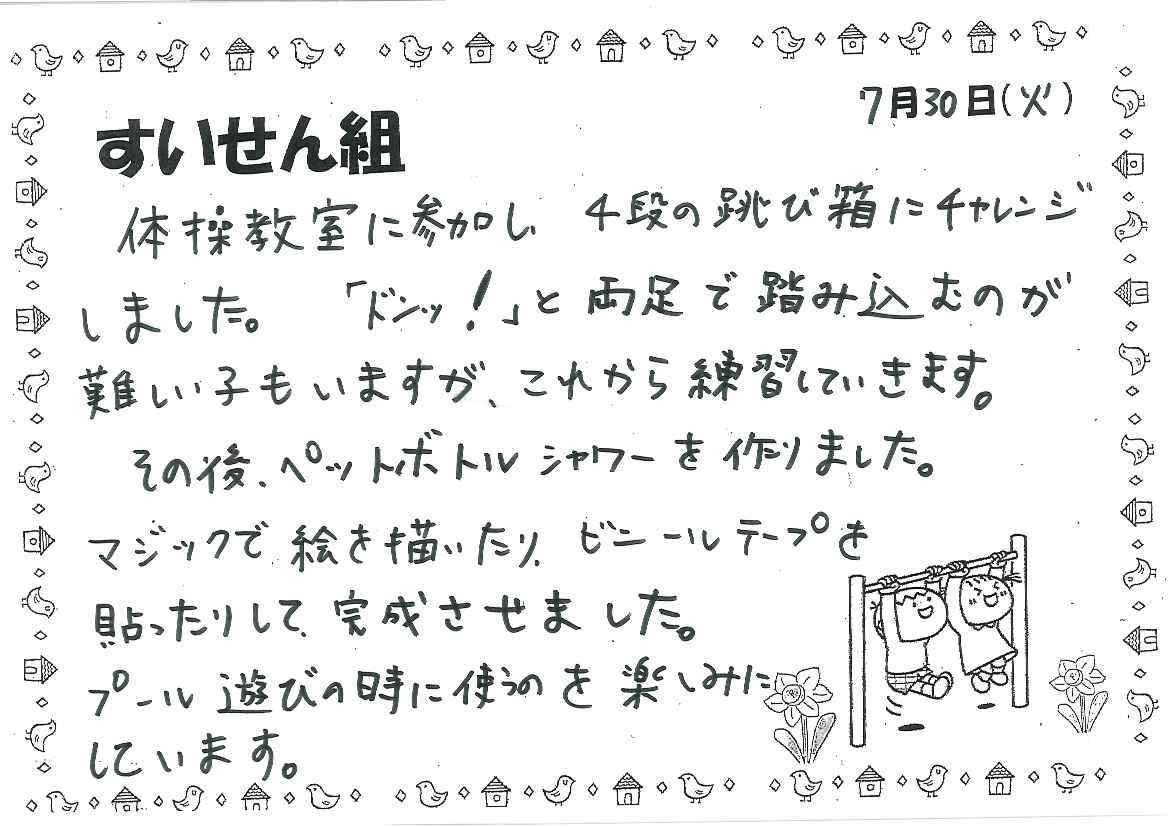 7月30日(火)
すいせん組
体操教室に参加し、4段の跳び箱にチャレンジ
しました。「ドンッ!」と両足で踏み込むのが
難しい子もいますが、これから練習していきます。
その後、ペットボトルシャワーを作りました。
マジックで絵を描いたり、ビニールテープを
貼ったりして、完成させました。
プール遊びの時に使うのを楽しみに
しています。